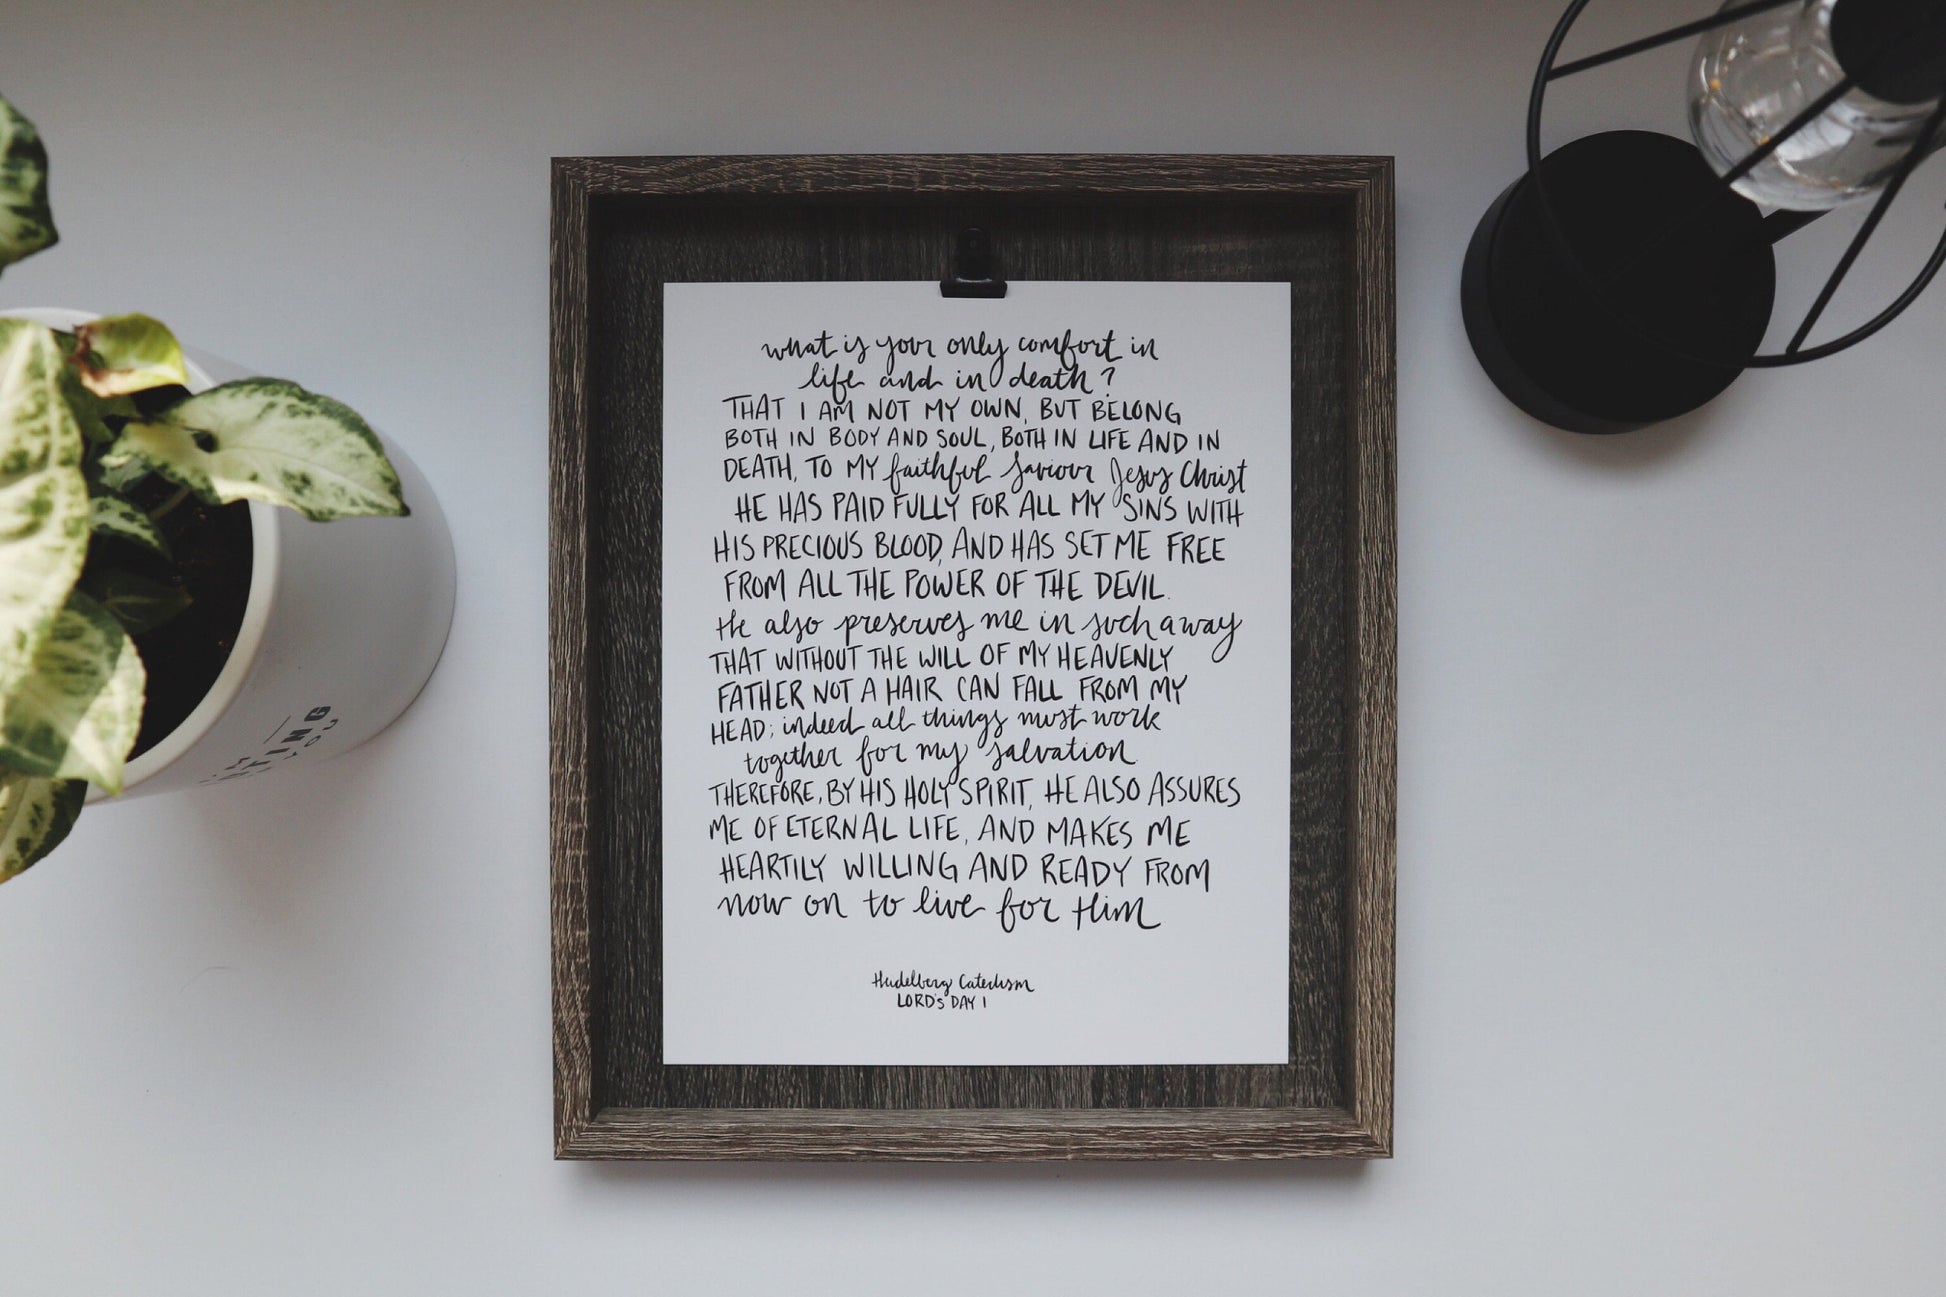 what is your only comfort in
life and in death?
THAT I AM NOT MY OWN, BUT BELONG
BOTH IN BODY AND SOUL, BOTH IN LIFE AND IN
DEATH, TO MY faithful Saviour Jesus Christ
HE HAS PAID FULLY FOR ALL MY SINS WITH
HIS PRECIOUS BLOOD, AND HAS SET ME FREE
FROM ALL THE POWER OF THE DEVIL.
He also preserves me in such a way
THAT WITHOUT THE WILL OF MY HEAVENLY
FATHER NOT A HAIR CAN FALL FROM MY
HEAD; indeed all things must work
together for my salvation.
THEREFORE, BY HIS HOLY SPIRIT, HE ALSO ASSURES
ME OF ETERNAL LIFE, AND MAKES ME
HEARTILY WILLING AND READY FROM
now on to live for Him
Heidelberg Catechism
LORD'S DAY 1